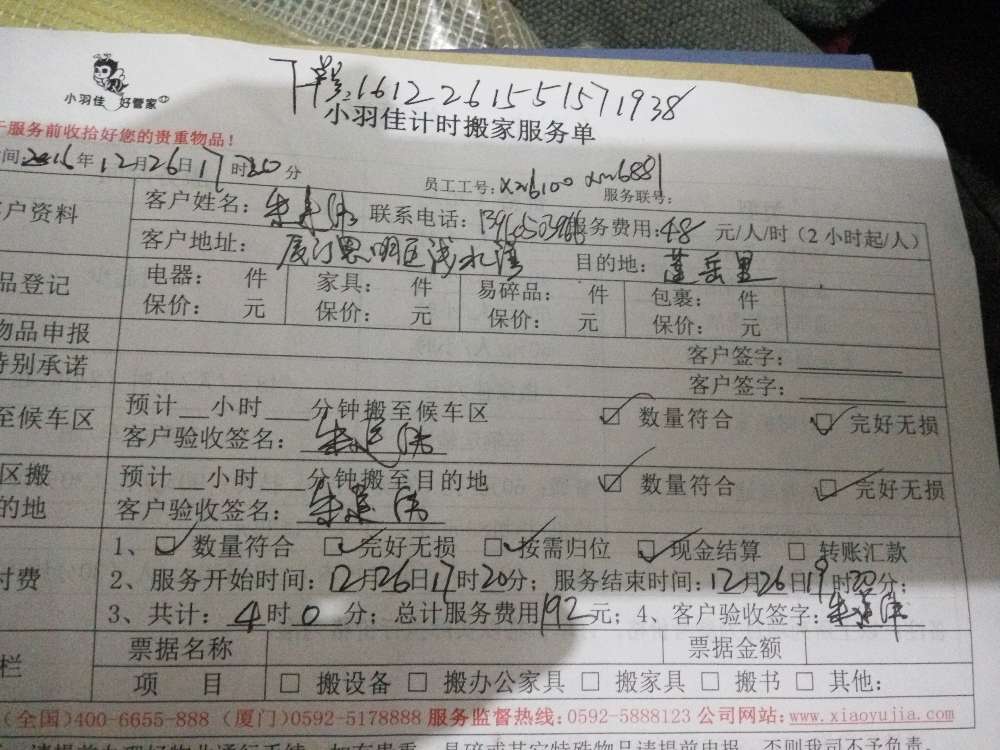 小羽佳 好管家
下单号:1612261551571938
小羽佳计时搬家服务单
服务前收拾好您的贵重物品!
间:2016年12月26日17时20分 员工工号:xm6100 xm6881 服务联号:
户资料 客户姓名: 联系电话: 务费用:48 元/人/时(2小时起/人)
客户地址:厦门思明区浅水湾 目的地:莲岳里
品登记 电器: 件 家具: 件 易碎品: 件 包裹: 件
保价: 元 保价: 元 保价: 元 保价: 元
物品申报 客户签字:
特别承诺 客户签字:
至候车区 预计__小时___分钟搬至候车区 ☑ 数量符合 ☑ 完好无损
客户验收签名:
区搬 预计__小时___分钟搬至目的地 ☑ 数量符合 ☑ 完好无损
的地 客户验收签名:
1、☑ 数量符合 ☑ 完好无损 ☑ 按需归位 ☑ 现金结算 □ 转账汇款
付费 2、服务开始时间:12月26日17时20分;服务结束时间:12月26日19时20分;
3、共计:4时0分;总计服务费用192元;4、客户验收签字:
栏 票据名称 票据金额
项 目 □ 搬设备 □ 搬办公家具 □ 搬家具 □ 搬书 □ 其他:
(全国)400-6655-888 (厦门)0592-5178888 服务监督热线:0592-5888123 公司网站:www.xiaoyujia.com